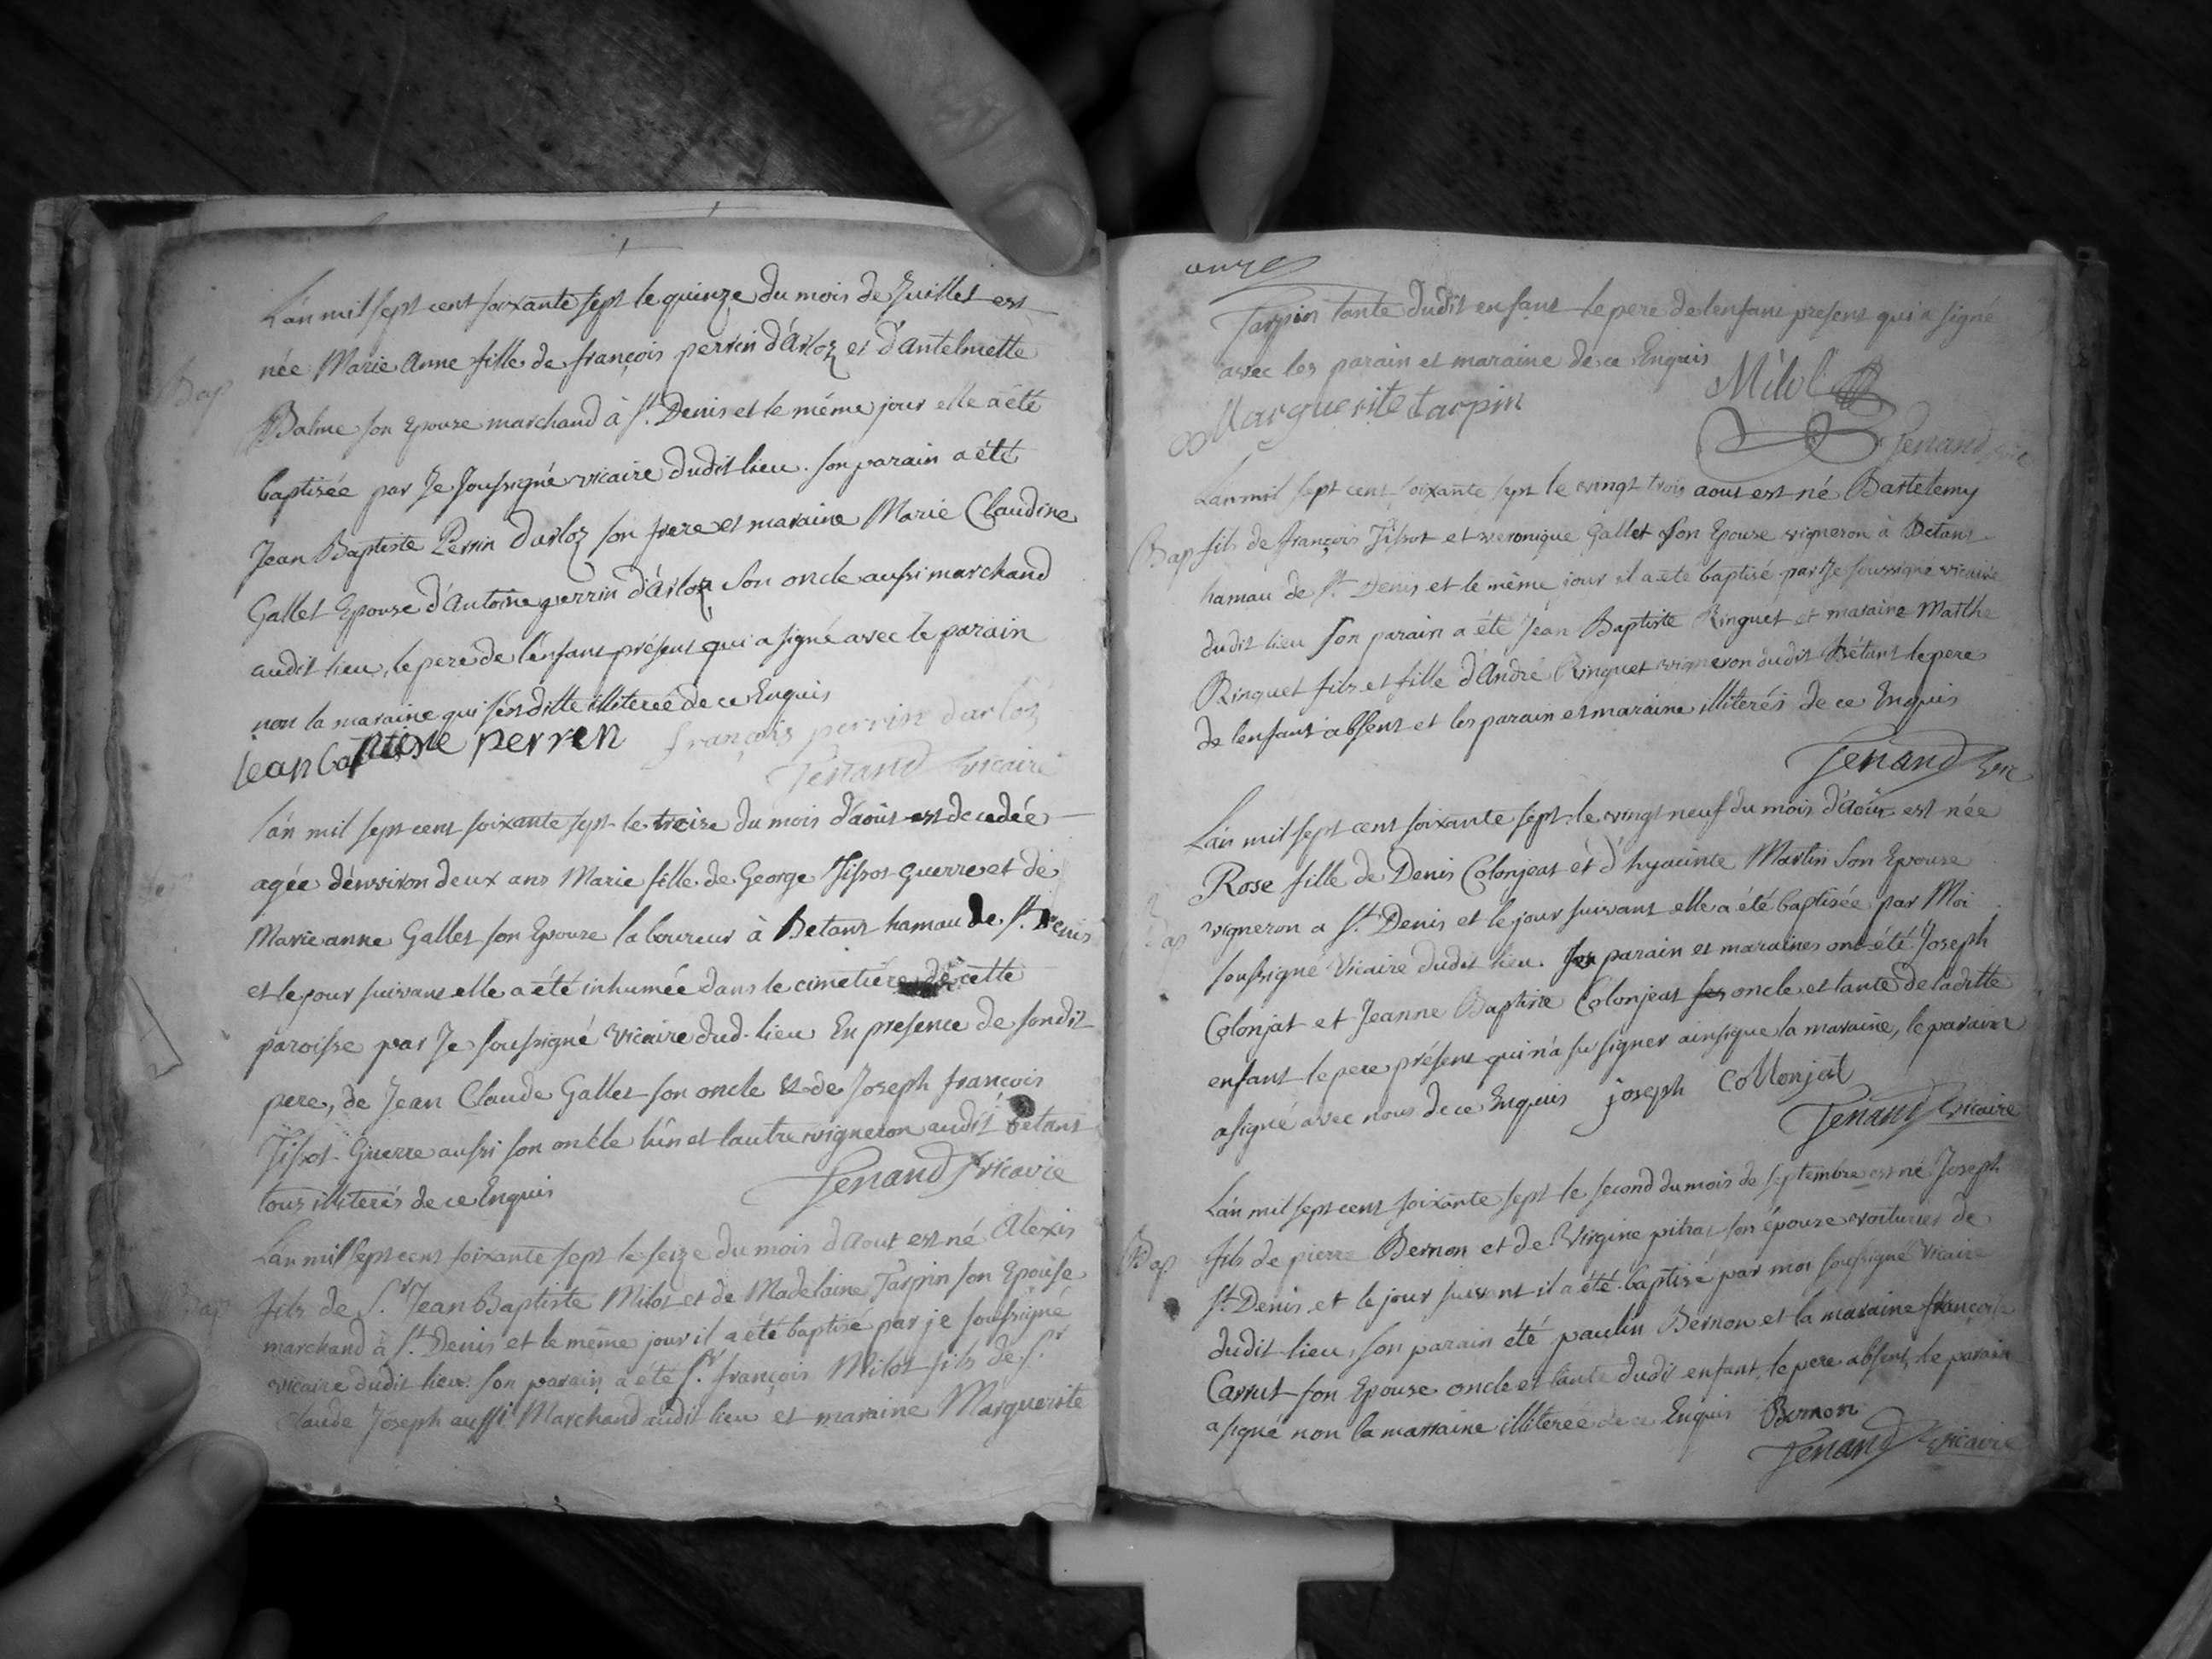 L'an mil sept cent soixante sept le quinze du mois de Juillet est
Bap
née Marie Anne fille de françois perrin d'Arloz et d'Antelmette
Balme son Epouse marchand à St. Denis et le même jour elle a été
baptisée par Je soussigné vicaire dudit lieu. son parain a été
Jean Baptiste Perrin darloz son frere et maraine Marie Claudine
Gallet Epouse d'Antoine perrin d'Arloz son oncle aussi marchand
audit lieu, le pere de l'enfant présent qui a signé avec le parain
non la maraine qui s'est ditte illiterée de ce Enquis
jean baptiste perren françois perrin darloz
Tenand vicaire
L'an mil sept cent soixante sept le troise du mois d'août est decedée
agée d'environ deux ans Marie fille de George Tissot Guerre et de
Marie anne Gallet son Epouse laboureur à Betant hamau de St. Denis
et le jour suivant elle a été inhumée dans le cimetiére de cette
paroisse par Je soussigné vicaire dud. lieu En presence de sondit
pere, de Jean Claude Gallet son oncle & de Joseph françois
Tissot Guerre aussi son oncle lun et lautre vigneron audit betant
tous illiterés de ce Enquis Tenand vicaire
L'an mil sept cent soixante sept le seize du mois d'Aout est né Alexis
Bap
fils de Sr. Jean Baptiste Milot et de Madelaine Tarpin son Epouse
marchand à St. Denis et le même jour il a été baptisé par je soussigné
vicaire dudit lieu. son parain a été Sr. françois Milot fils de Sr.
Claude Joseph aussi Marchand audit lieu et maraine Marguerite
onze
Tarpin tante dudit enfant le pere de lenfant present qui a signé
avec les parain et maraine de ce Enquis Milot
Marguerite tarpin
Tenand vic
L'an mil sept cent soixante sept le vingt trois aout est né Bartelemy
Bap fils de françois Tissot et veronique Gallet son Epouse vigneron à Betant
hamau de St. Denis et le même jour il a été baptisé par Je soussigné vicaire
dudit lieu son parain a été Jean Baptiste Ringuet et maraine Marthe
Ringuet fils et fille d'André Ringuet vigneron dudit Bétant le pere
de lenfant absent et les parain et maraine illiterés de ce Enquis
Tenand vic
L'an mil sept cent soixante sept le vingt neuf du mois d'Août est née
Rose fille de Denis Colonjeat et d'hyacinte Martin son Epouse
Bap
vigneron a St. Denis et le jour suivant elle a été baptisée par Moi
soussigné Vicaire dudit lieu. ses parain et maraines ont été Joseph
Colonjat et Jeanne Baptiste Colonjeat ses oncle et tante de laditte
enfant le pere présent qui n'a su signer ainsi que la maraine, le parain
a signé avec nous de ce Enquis joseph Collonjat
Tenand vicaire
L'an mil sept cent soixante sept le second du mois de septembre est né Joseph
Bap fils de pierre Bernon et de Virgine pitrat son épouse voiturier de
St. Denis et le jour suivant il a été baptisé par moi soussigné Vicaire
dudit lieu, son parain été paulin Bernon et la maraine françoise
Carrut son Epouse oncle et tante dudit enfant, le pere absent, le parain
a signé non la marraine illiterée de ce Enquis Bernon
Tenand vicaire